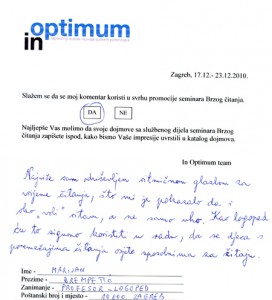 optimum
in
Zagreb, 17.12.- 23.12.2010.
Slažem se da se moj komentar koristi u svrhu promocije seminara Brzog čitanja.
DA NE
Najljepše Vas molimo da svoje dojmove sa službenog dijela seminara Brzog
čitanja zapišete ispod, kako bismo Vaše impresije uvrstili u katalog dojmova.
In Optimum team
Najviše sam oduševljen stručnim glasbom za
vrijeme čitanja, što mi je pokazalo da i
oko „vidi” čitam, a ne samo uho. Kao logoped
ću to sigurno koristiti u radu, da se djeca s
poremećajima čitanja osjete sposobnima za čitanje.
Ime - MARIJAN
Prezime -
Zanimanje - PROFESOR - LOGOPED
Poštanski broj i mjesto - 10 000 ZAGREB